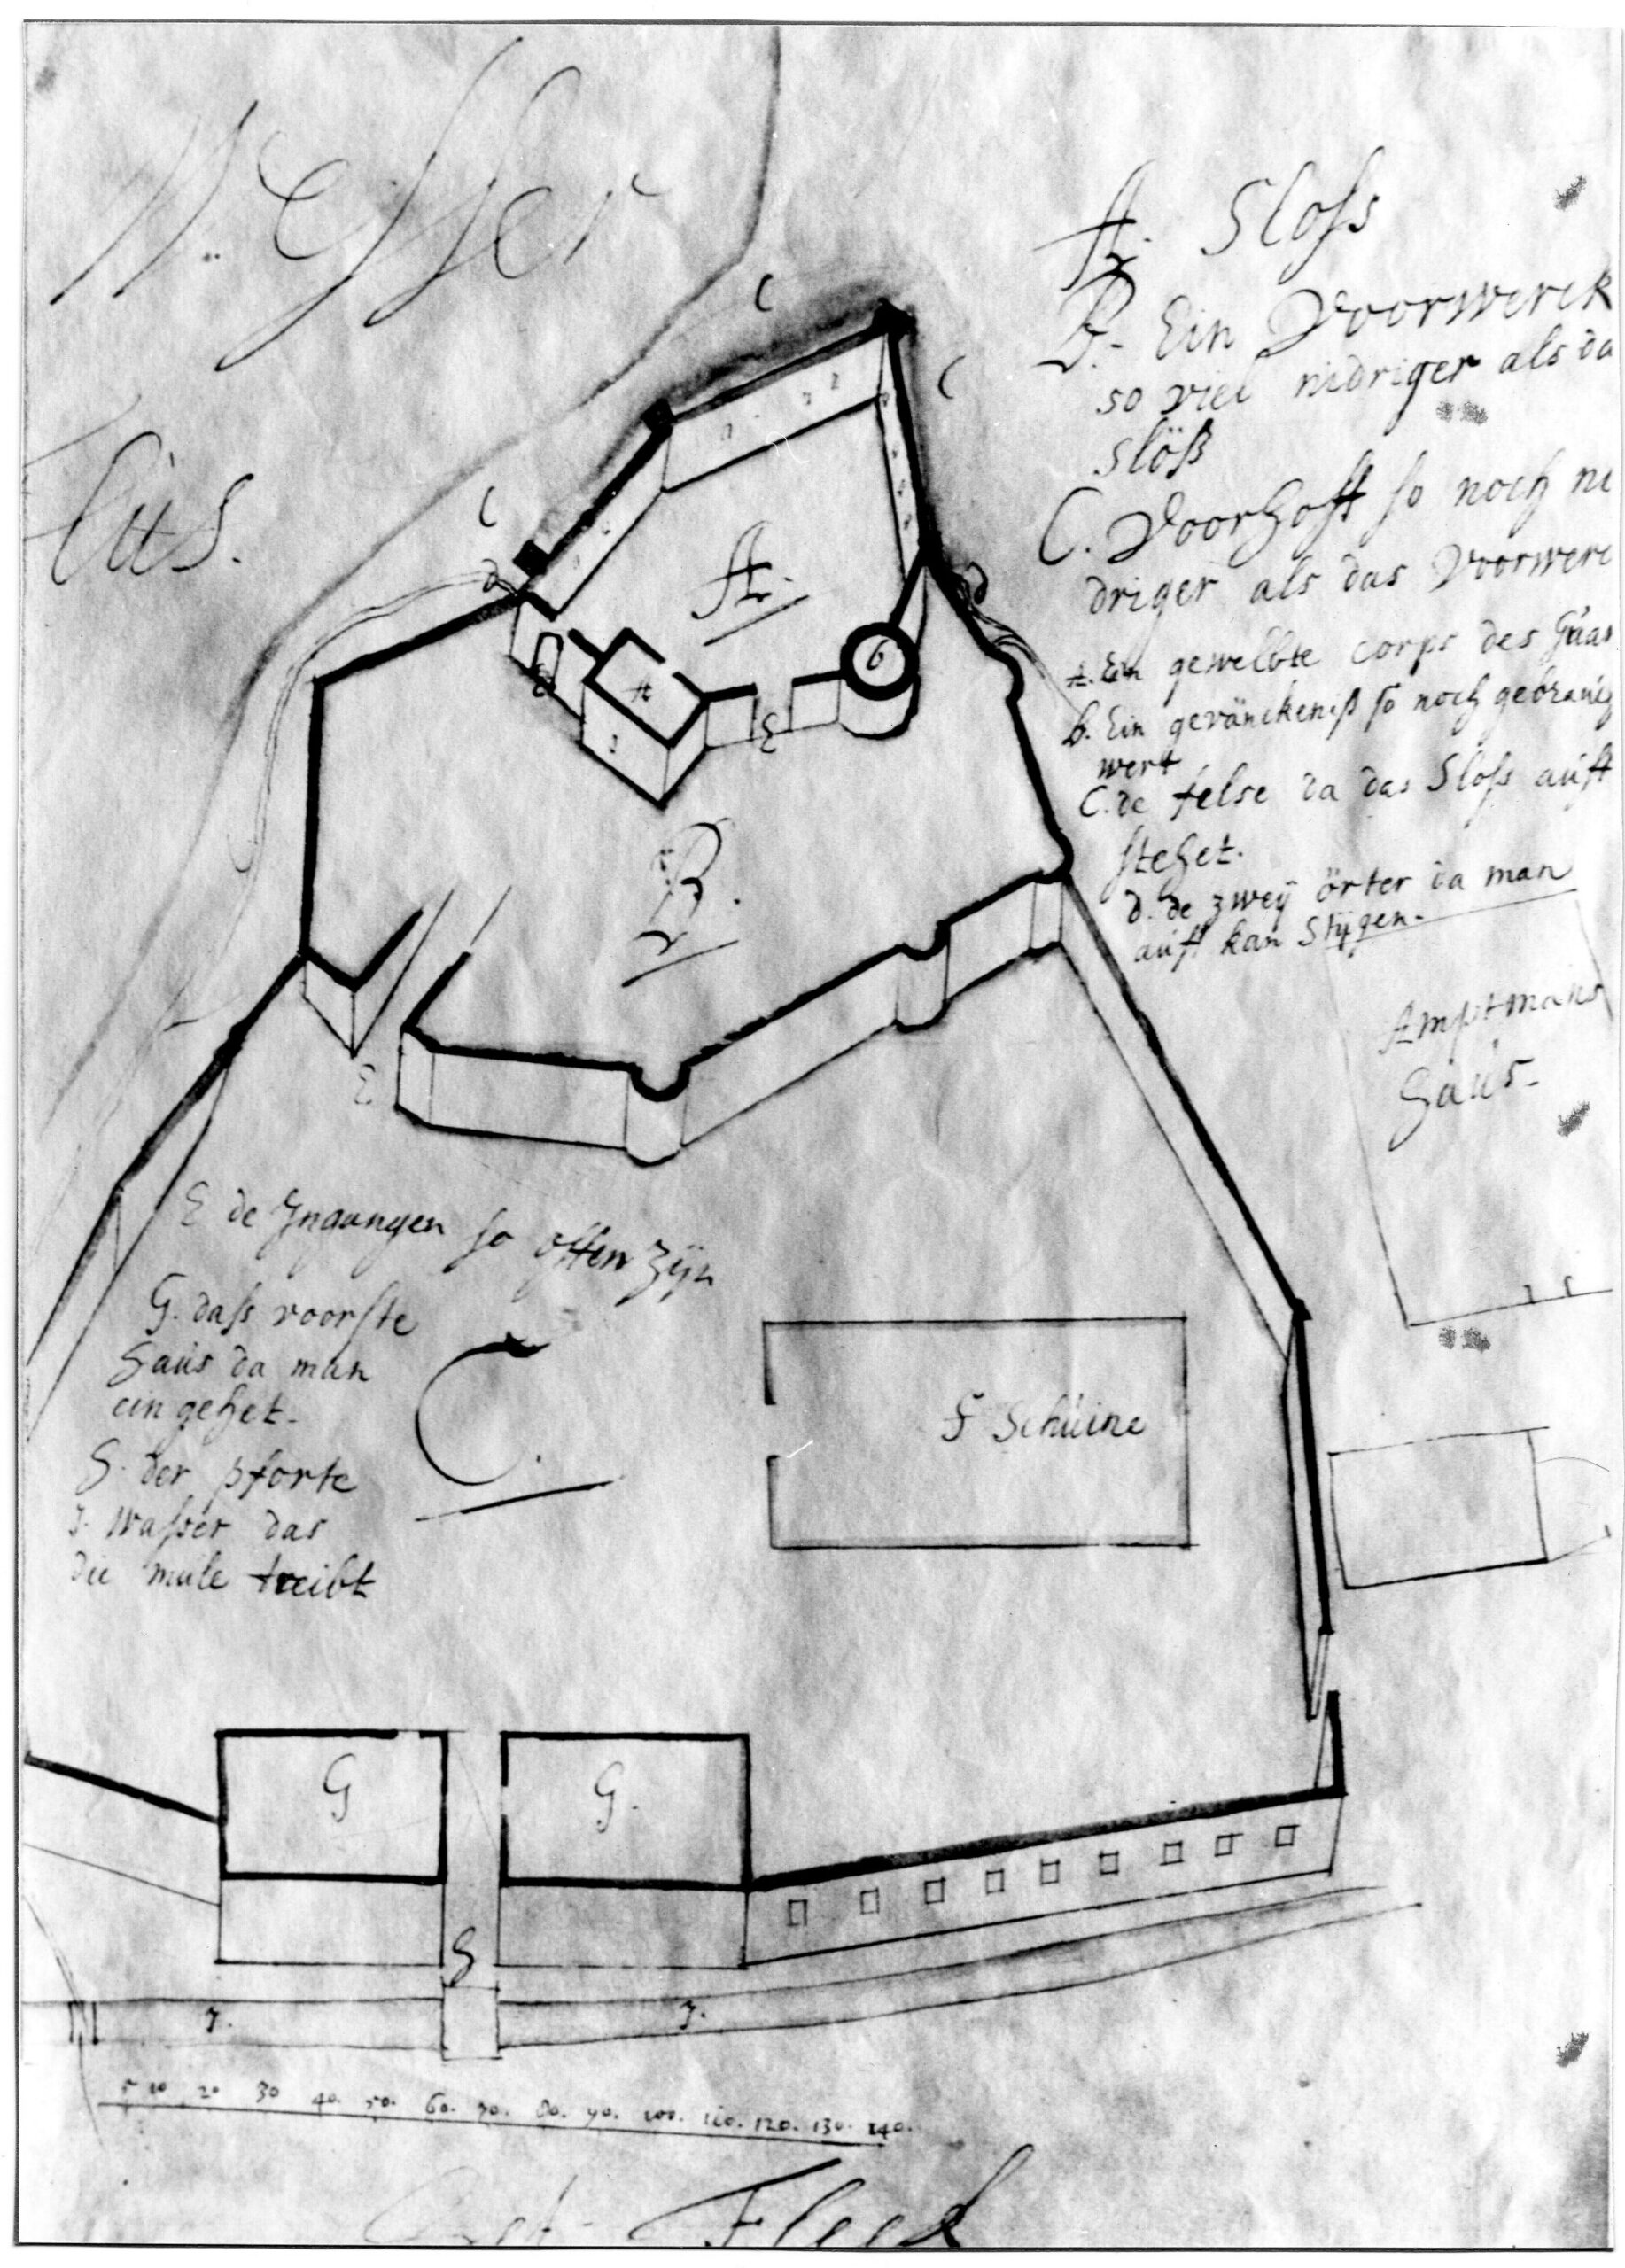 Wesser
flüs.
A. Sloss
B.- Ein Voorwerck
so viel nidriger als da
slöß
C. Voorhoff so noch ni
driger als das Voorwerc
A. Ein gewelbte corps des
b. Ein gevänckeniß so noch gebrauc
wert
C. de felse da das Sloss auff
stehet.
d. de zweÿ örter da man
auff kan Stÿgen.
Amptmans
Haus.
C
C
C
d
d
A.
A
6
E
B.
E
E de Ingaungen so offen zÿn
G. dass voorste
Haus da man
eingehet.
H. der pforte
J. Wasser das
die mule treibt
C.
F Schuine
G
G.
H
J.
J.
5 10 20 30 40. 50. 60. 70. 80. 90. 100. 110. 120. 130. 140.
Fleck